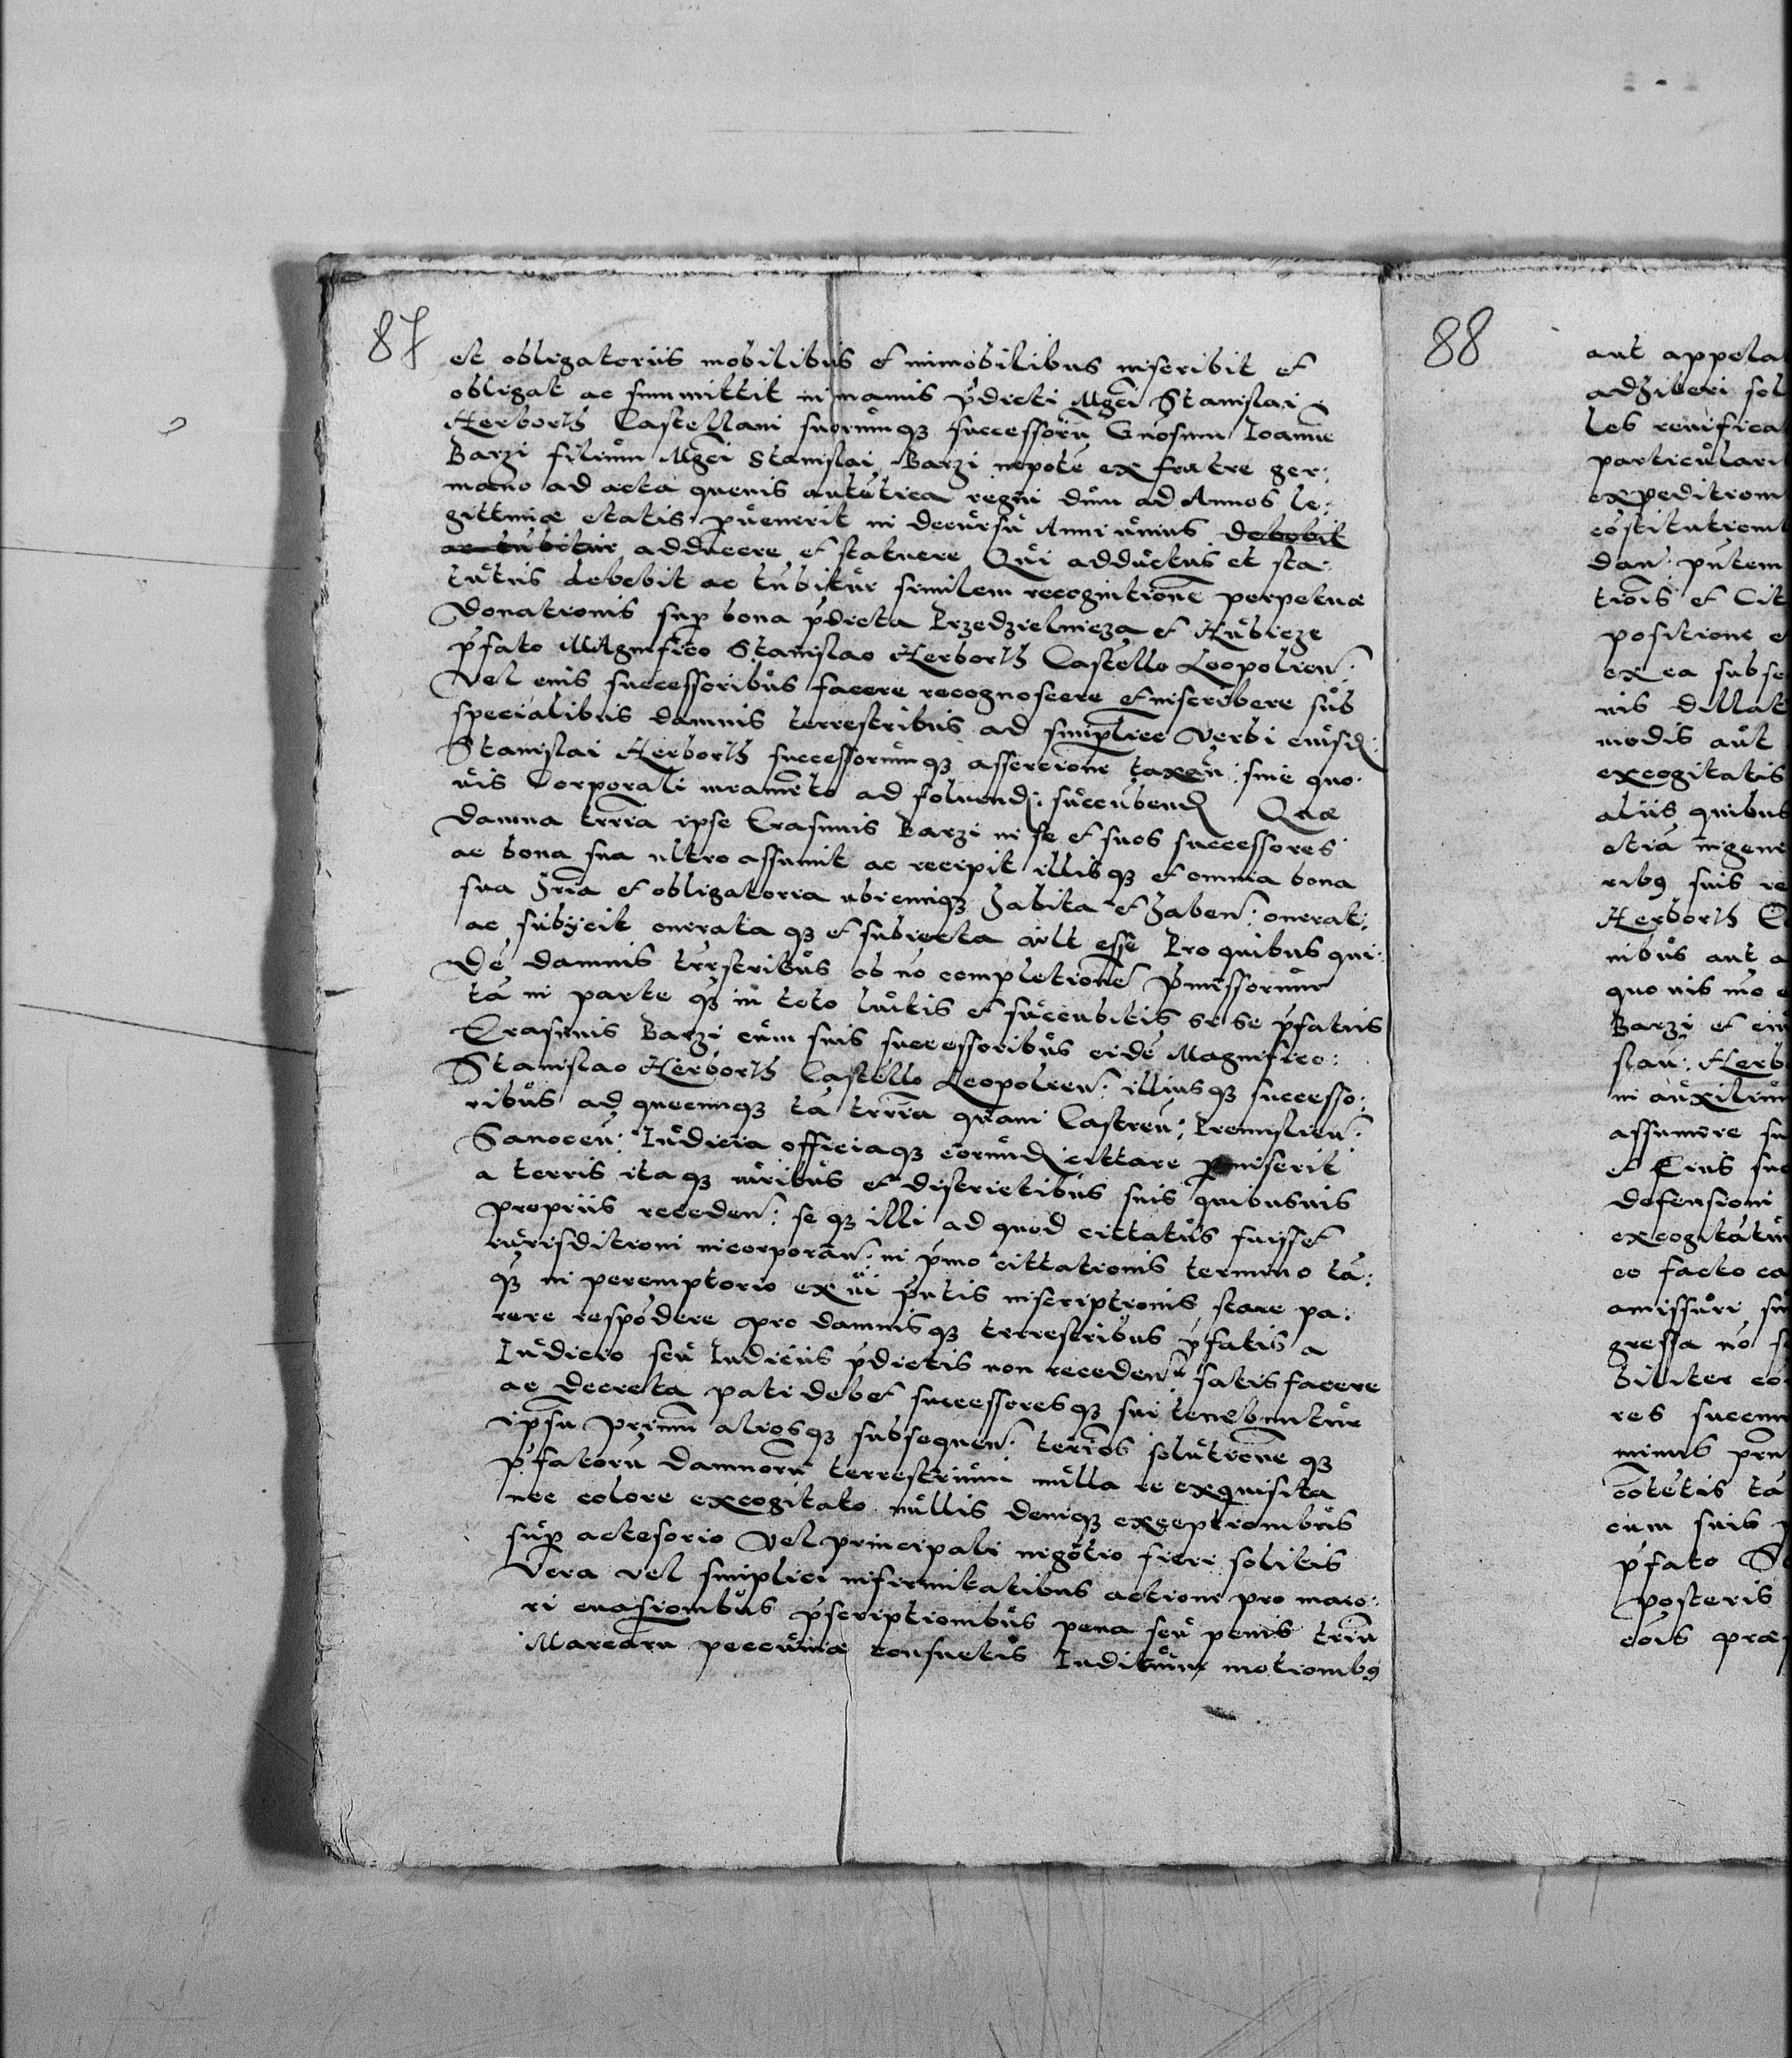 87
et obligatoriis mobilibus et immobilibus inscribit et
obligat ac summittit in manus pdicti Mgci Stanislai
Herborth Castellani suorumq; successorū Gnosum Ioannē
Barzi filium Mgci Stanislai Barzi nepotē ex fratre ger:
mano ad acta quevis autētica regni dum ad Annos le:
gittimæ etatis pvenerit in decursu Anni unius debebit
ac tūbitur adducere et statuere Qui adductus et sta:
tutus debebit ac tūbitur similem recognitionē perpetuæ
Donationis sup bona pdicta Przedzielnicza et Kubicze
pfato Magnifico Stanislao Herborth Castello Leopolien:
Vel eius successoribus facere recognoscere et inscribere sub
specialibus damnis terrestribus ad simplice Verbi eiusd:
Stanislai Herborth successorumq; assercione taxan: sine quo:
vis Corporali iuramēto ad solvend: succubend Quæ
damna trria ipse Erasmus Barzi in se et suos successores
ac bona sua ultro assumit ac recipit illisq; et omnia bona
sua hria et obligatoria ubicunq; habita et haben: onerat:
ac subijcit onerata q; et subiecta vlt esse Pro quibus qui:
dē damnis trrstribus ob nō completionē pmissorum
tā in parte q; in toto luitis et succubitis se se pfatus
Erasmus Barzi cum suis successoribus eidē Magnifico:
Stanislao Herborth Castello Leopolien: illiusq; successo:
ribus ad quecunq; tā trria qvam Castren: Premislien:
Sanocen: Iudicia officiaq; eorund cittare pmiserit
a terris itaq; iuribus et districtibus suis quibusvis
propriis receden: se q; illi ad quod cittatus fuisset
iurisditioni incorporan: in pmo cittationis termino tā:
q; in peremptorio ex vi pntis inscriptionis stare pa:
rere respōdere pro damnisq; terrestribus pfatis a
Iudicio seu Iudiciis pdictis non receden: satisfacere
ac decreta pati debet successoresq; sui tenebuntur
ipsū primū aliosq; subsequen: terrōs solutione q;
pfatorū damnorū terrestrium nulla re exquisita
nec colore excogitato nullis deniq; exceptionibus
sup actesorio Vel principali negotio fieri solitis
Vera vel simplici infirmitatibus actione pro maio:
ri evasionibus pscriptionibus pena seu penis triū
Marcarū peccuniæ consuetis Iuditium motionibq
88
aut appela
adhiberi sol
les
particulari
expeditioni
cōstitutioni
dan: putem
tiōis et Cit
positione e
ex ea subse
nis dillat
modis aut
excogitatis
aliis quibus
etiā in gene
ribq suis re
Herborth C
nibus aut a
quo vis mō
Barzi et eiu
stan: Herb
in auxilium
assumere su
et Eius suc
defensioni
excogitatu
eo facto ca
amissuri su
gressa nō s
biliter co
res succum
minus prn
cōtētis tā
cum suis
pfato S
posteris
cōis præ